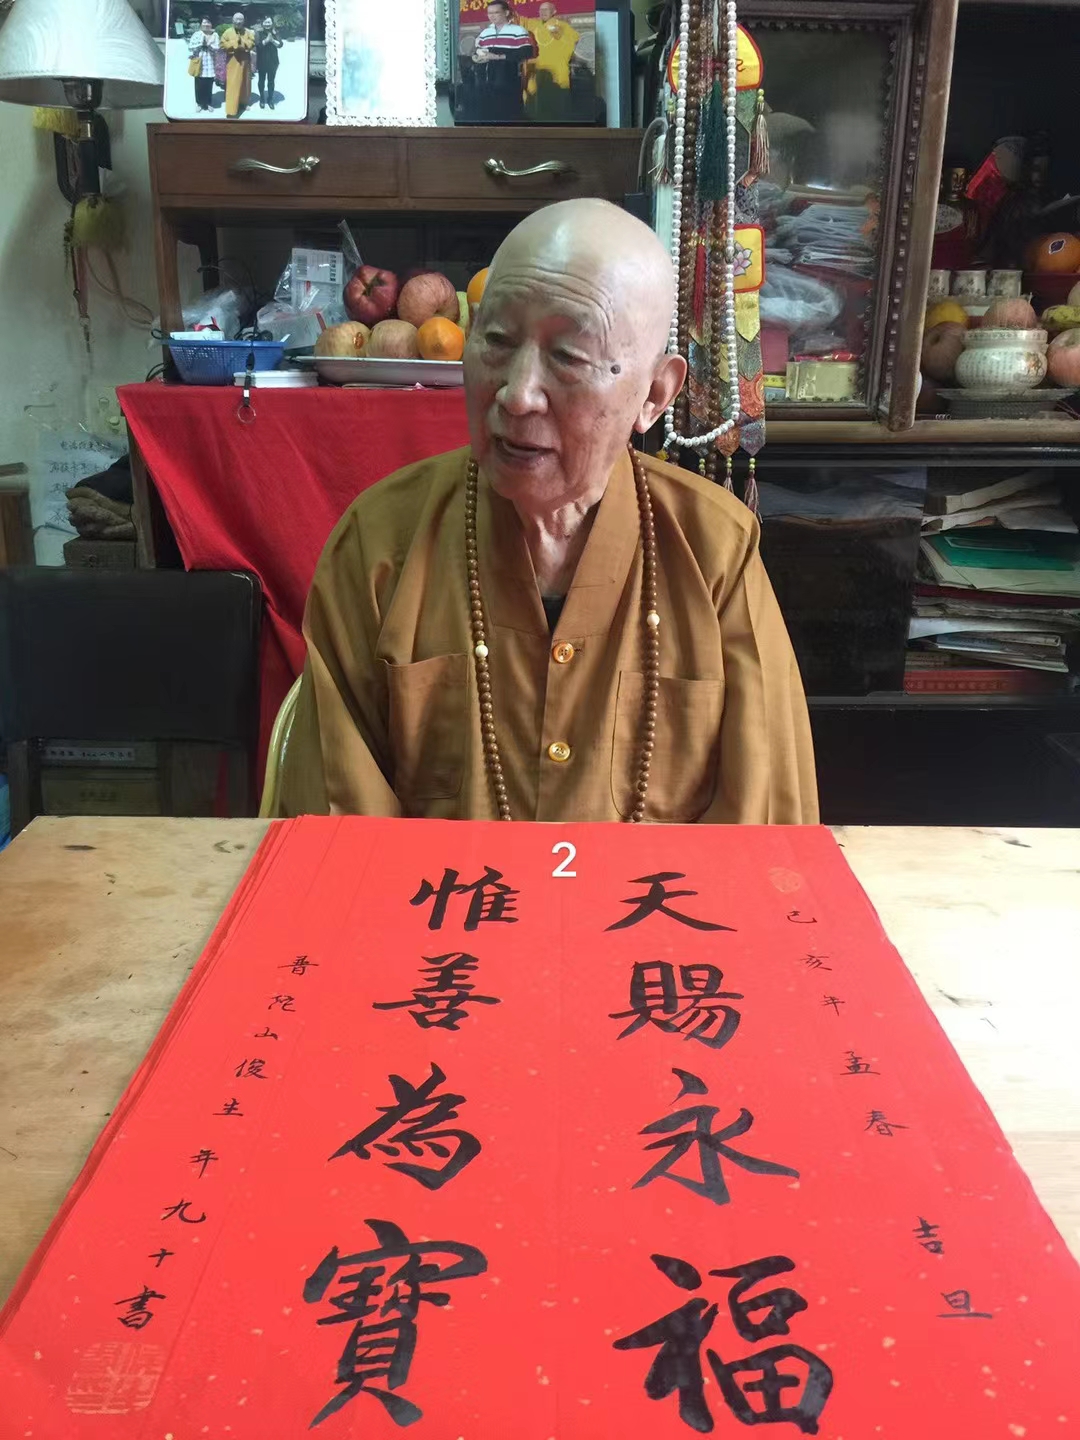 2
己亥年孟春吉旦
天賜永福
惟善為寶
普陀山俊生年九十書